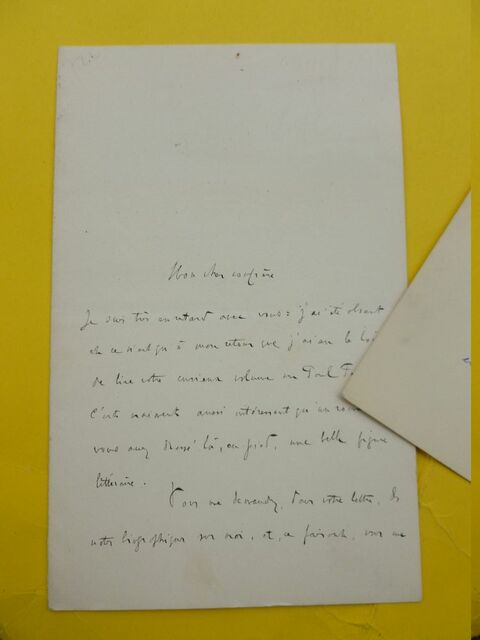 Mon cher confrère
Je suis très en retard avec vous : j'ai été absent
et ce n'est qu'à mon retour que j'ai eu le
de lire votre curieux volume sur Paul
C'est vraiment aussi intéressant qu'un
vous avez dressé là, en pied, une belle figure
littéraire.
Vous me demandez, dans votre lettre, des
notes biographiques sur moi, et, ce faisant, vous me